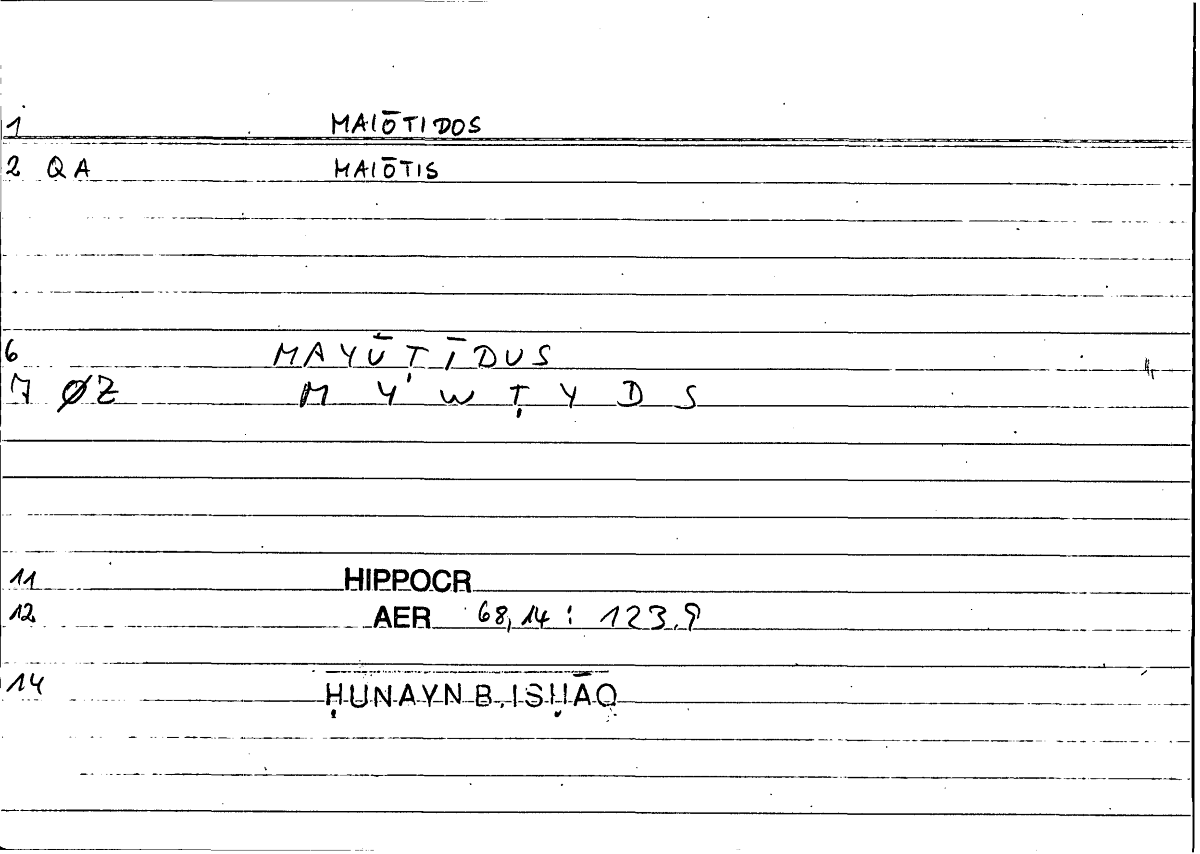 1 MAIŌTIDOS
2 QA MAIŌTIS
6 MAYŪṬĪDUS
7 ØZ M Y' W Ṭ Y D S
11 HIPPOCR
12 AER 68,14 : 123,9
14 ḤUNAYN B. ISḤĀQ